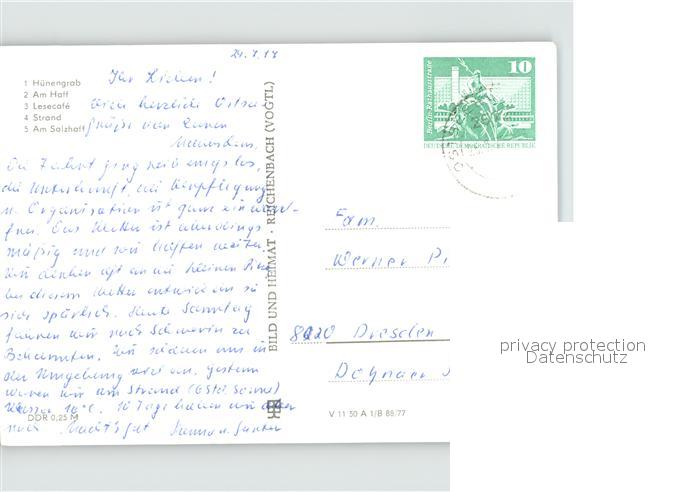 24.7.77
1 Hünengrab
2 Am Haff
3 Lesecafé
4 Strand
5 Am Salzhaff
Ihr Lieben!
herzliche Ostsee-
grüße von Euren
Die Fahrt ging reibungslos,
die Unterkunft, die Verpflegung
u. Organisation ist ganz einwand-
frei. Das Wetter ist allerdings
mäßig und wir hoffen weiter.
Wir denken oft an die kleinen
bei diesem Wetter entwickeln sie
sich spärlich. Heute Samstag
fahren wir nach Schwerin zu
Bekannten. Wir sehen uns in
der Umgebung viel an. Gestern
waren wir am Strand (6 Std. Sonne)
Wasser 16°C. 10 Tage haben wir
noch. Macht's gut
DDR 0,25 M
BILD UND HEIMAT · REICHENBACH (VOGTL)
10
Berlin-Rathausstraße
DEUTSCHE DEMOKRATISCHE REPUBLIK
Fam.
Werner
8020 Dresden
V 11 50 A 1/B 88/77
privacy protection
Datenschutz